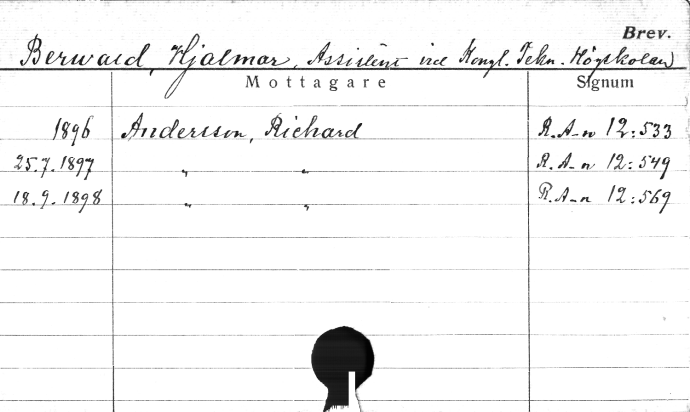 Brev.
Berwald, Hjalmar, Assistent vid Kongl. Tekn. Högskolan
Mottagare Signum
1896 Andersson, Richard R. A-n 12:533
25.7.1897 " " R. A-n 12:549
18.9.1898 " " R. A-n 12:569